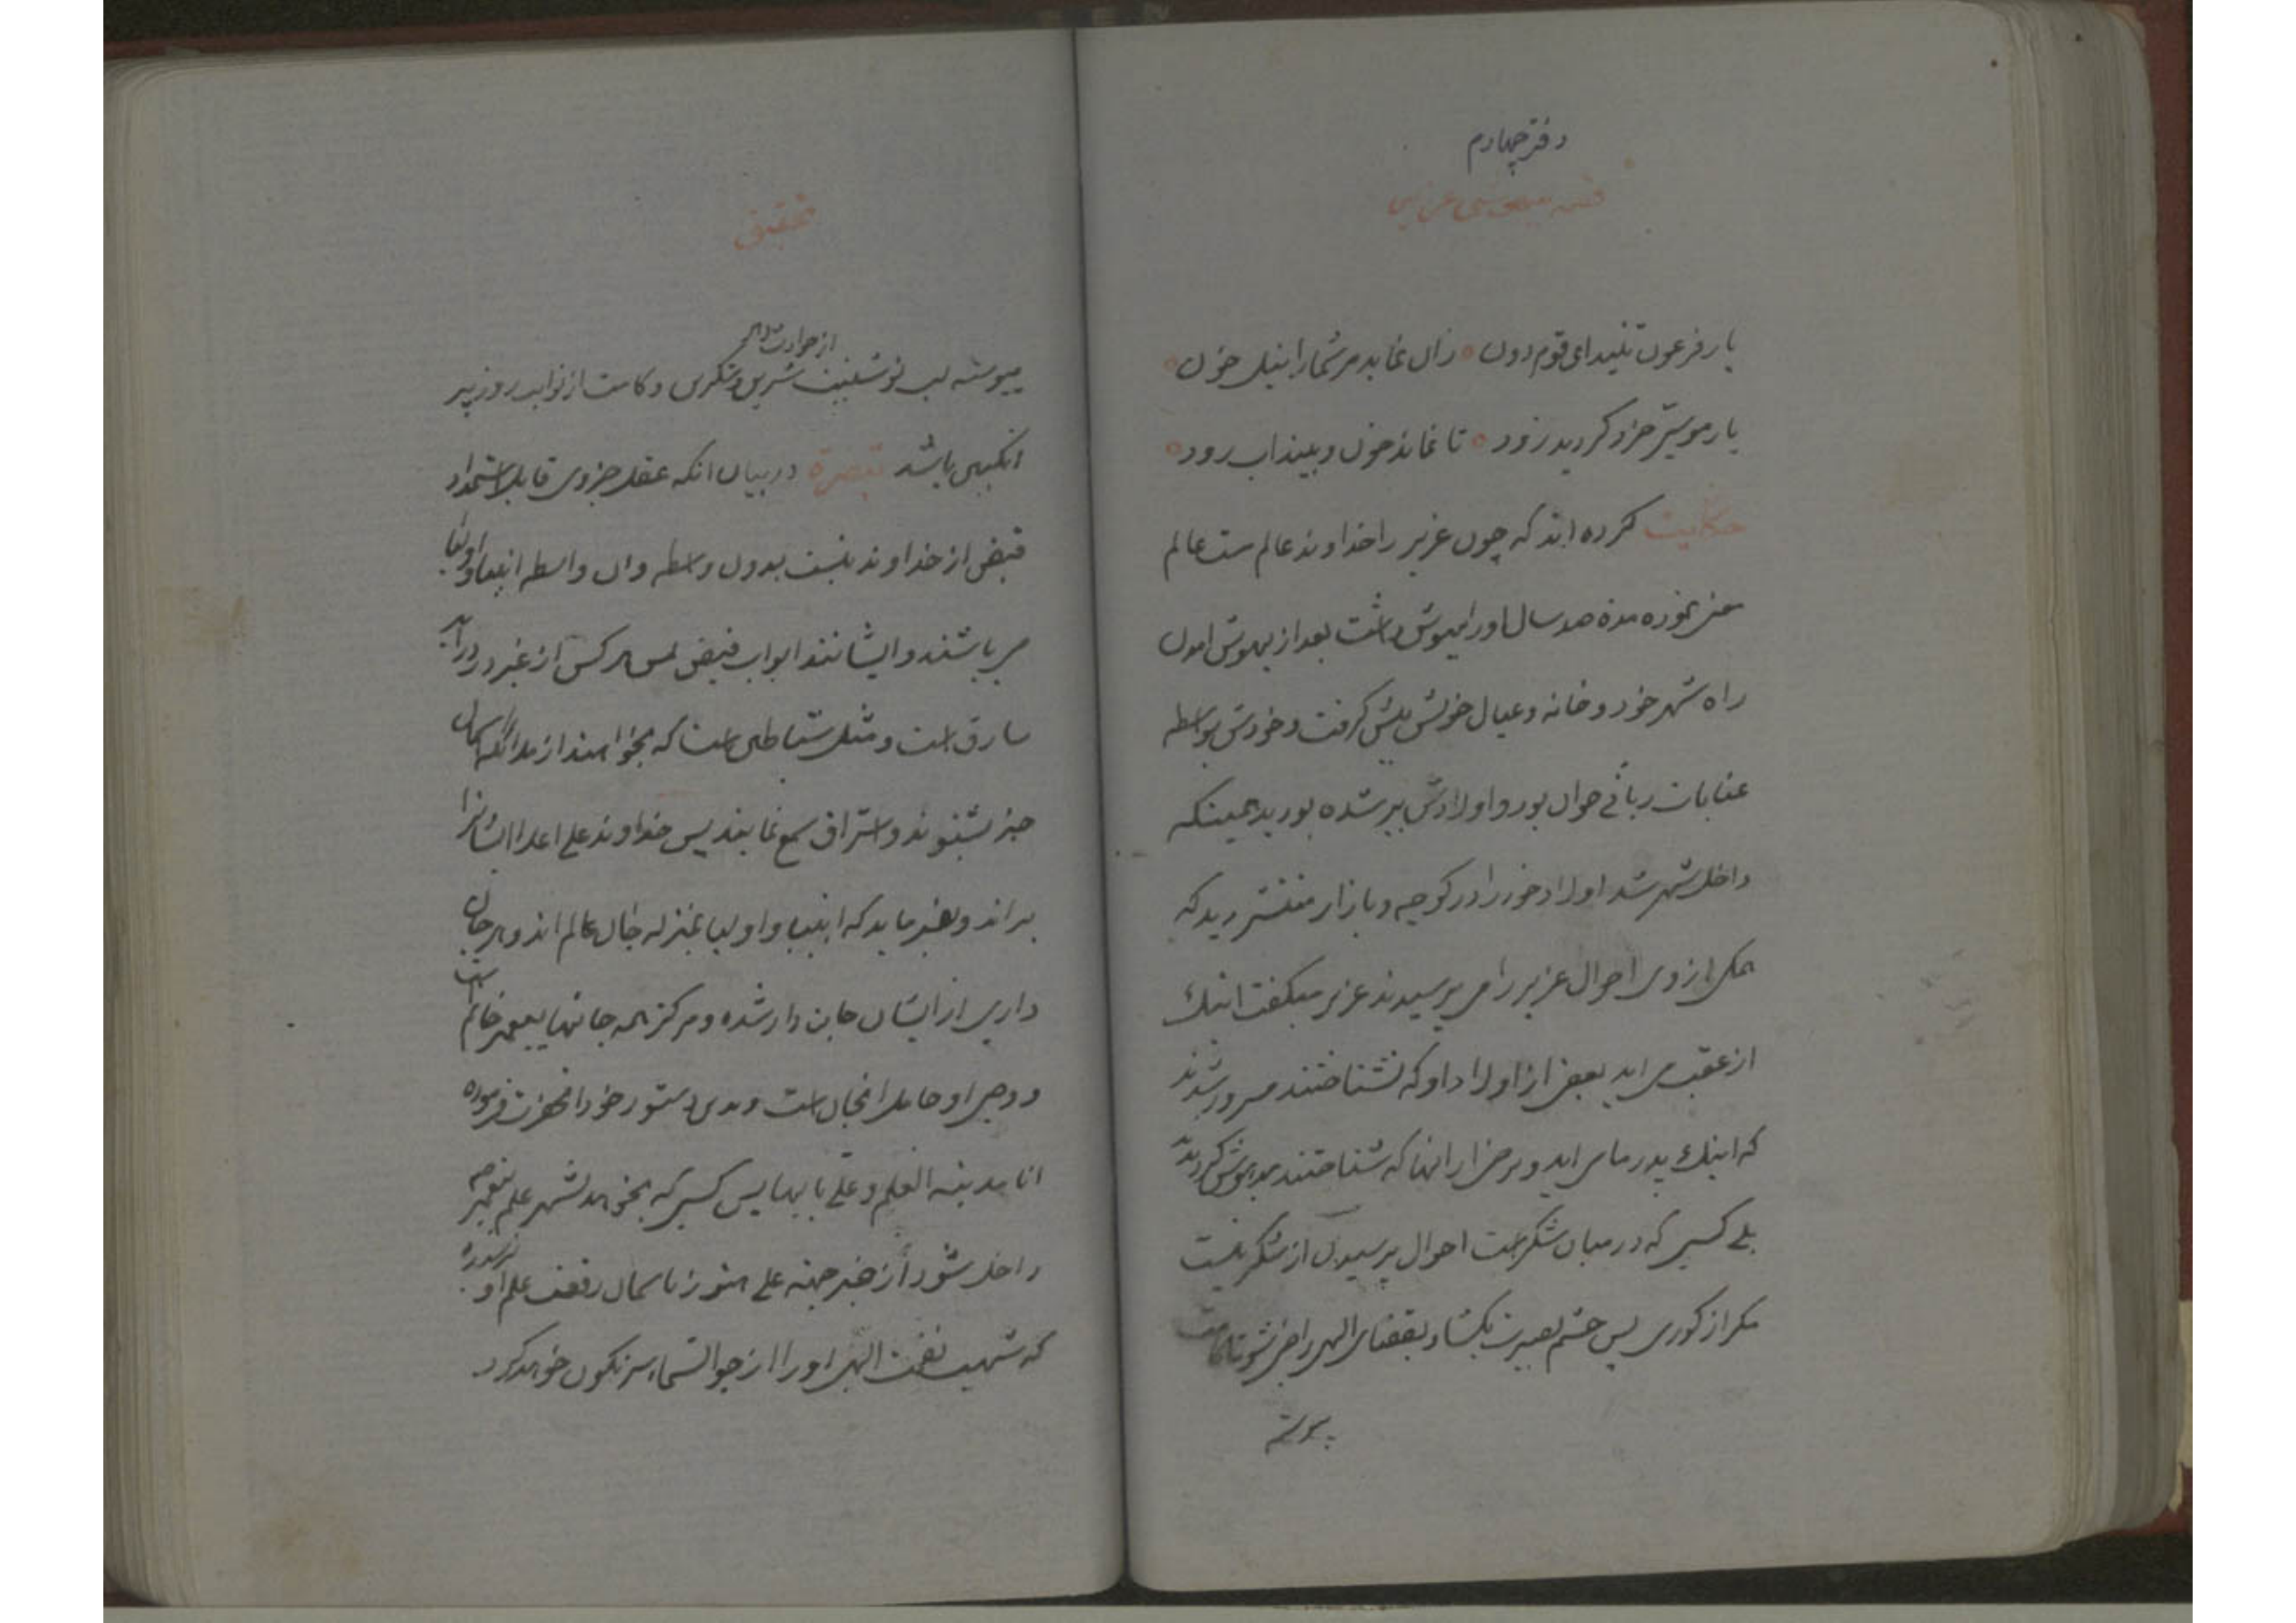 دفتر چهارم
قصه بیهوشی عزیر
یار فرعون تنید ای قوم دون ه زان نماید مر شما را نیل خون ه
یار موسی خرد گردید زود ه تا نماند خون و بیند اب رود ه
حکایت کرده اند که چون عزیر را خداوند عالم مست عالم
معنی نموده مدة صد سال او را بیهوش داشت بعد از بیهوش امدن
راه شهر خود و خانه و عیال خویش پیش گرفت و خودش بواسطه
عنایات ربانی جوان بود و اولادش پیر شده بودید همینکه
داخل شهر شد اولاد خود را در کوچه و بازار منتشر دید که
همکی از وی احوال عزیر را می پرسیدند عزیر میکفت اینک
از عقب می اید بعضی از اولاد او که نشناختند مسرور شدند
که اینک پدر ما می اید و برخی از انها که شناختند مدهوش کردیدند
بلی کسی که در میان شکر است احوال پرسیدن از شکر نیست
مکر از کوری پس چشم بصیرت بکشا و بقضای الهی راضی شو تا کامت
پیوسته
تحقیق
پیوسته لب نوشینت شیرین و شکرین و کامت از نوایب روز پیر
از حوادث دهر
انکبین باشد تبصرة در بیان انکه عقل جزوی قابل استمداد
فیض از خداوند نیست بدون واسطه و ان واسطه انبیا و اولیا
می باشند و ایشانند ابواب فیض پس هر کس از غیر در در اید
سارق است و مثل شیاطین است که بخواهند از ملائکه اسمان
خبر بشنوند و استراق سمع نمایند پس خداوند علی اعلا ایشانرا
براند و بفرماید که انبیا و اولیا بمنزله جان عالم اند و هر جان
داری از ایشان جان دار شده و مرکز همه جانها پیغمبر خاتم است
و وصی او حامل انجان است و بدین دستور خود انحضرت فرموده
انا مدینه العلم و علی بابها پس کسی که بخواهد بشهر علم پیغمبر
داخل شود از غیر جهته علی هنوز باسمان رفعت علم او نرسیده
که شهب نقمت الهی او را از جو السماء سرنکون خواهد کرد